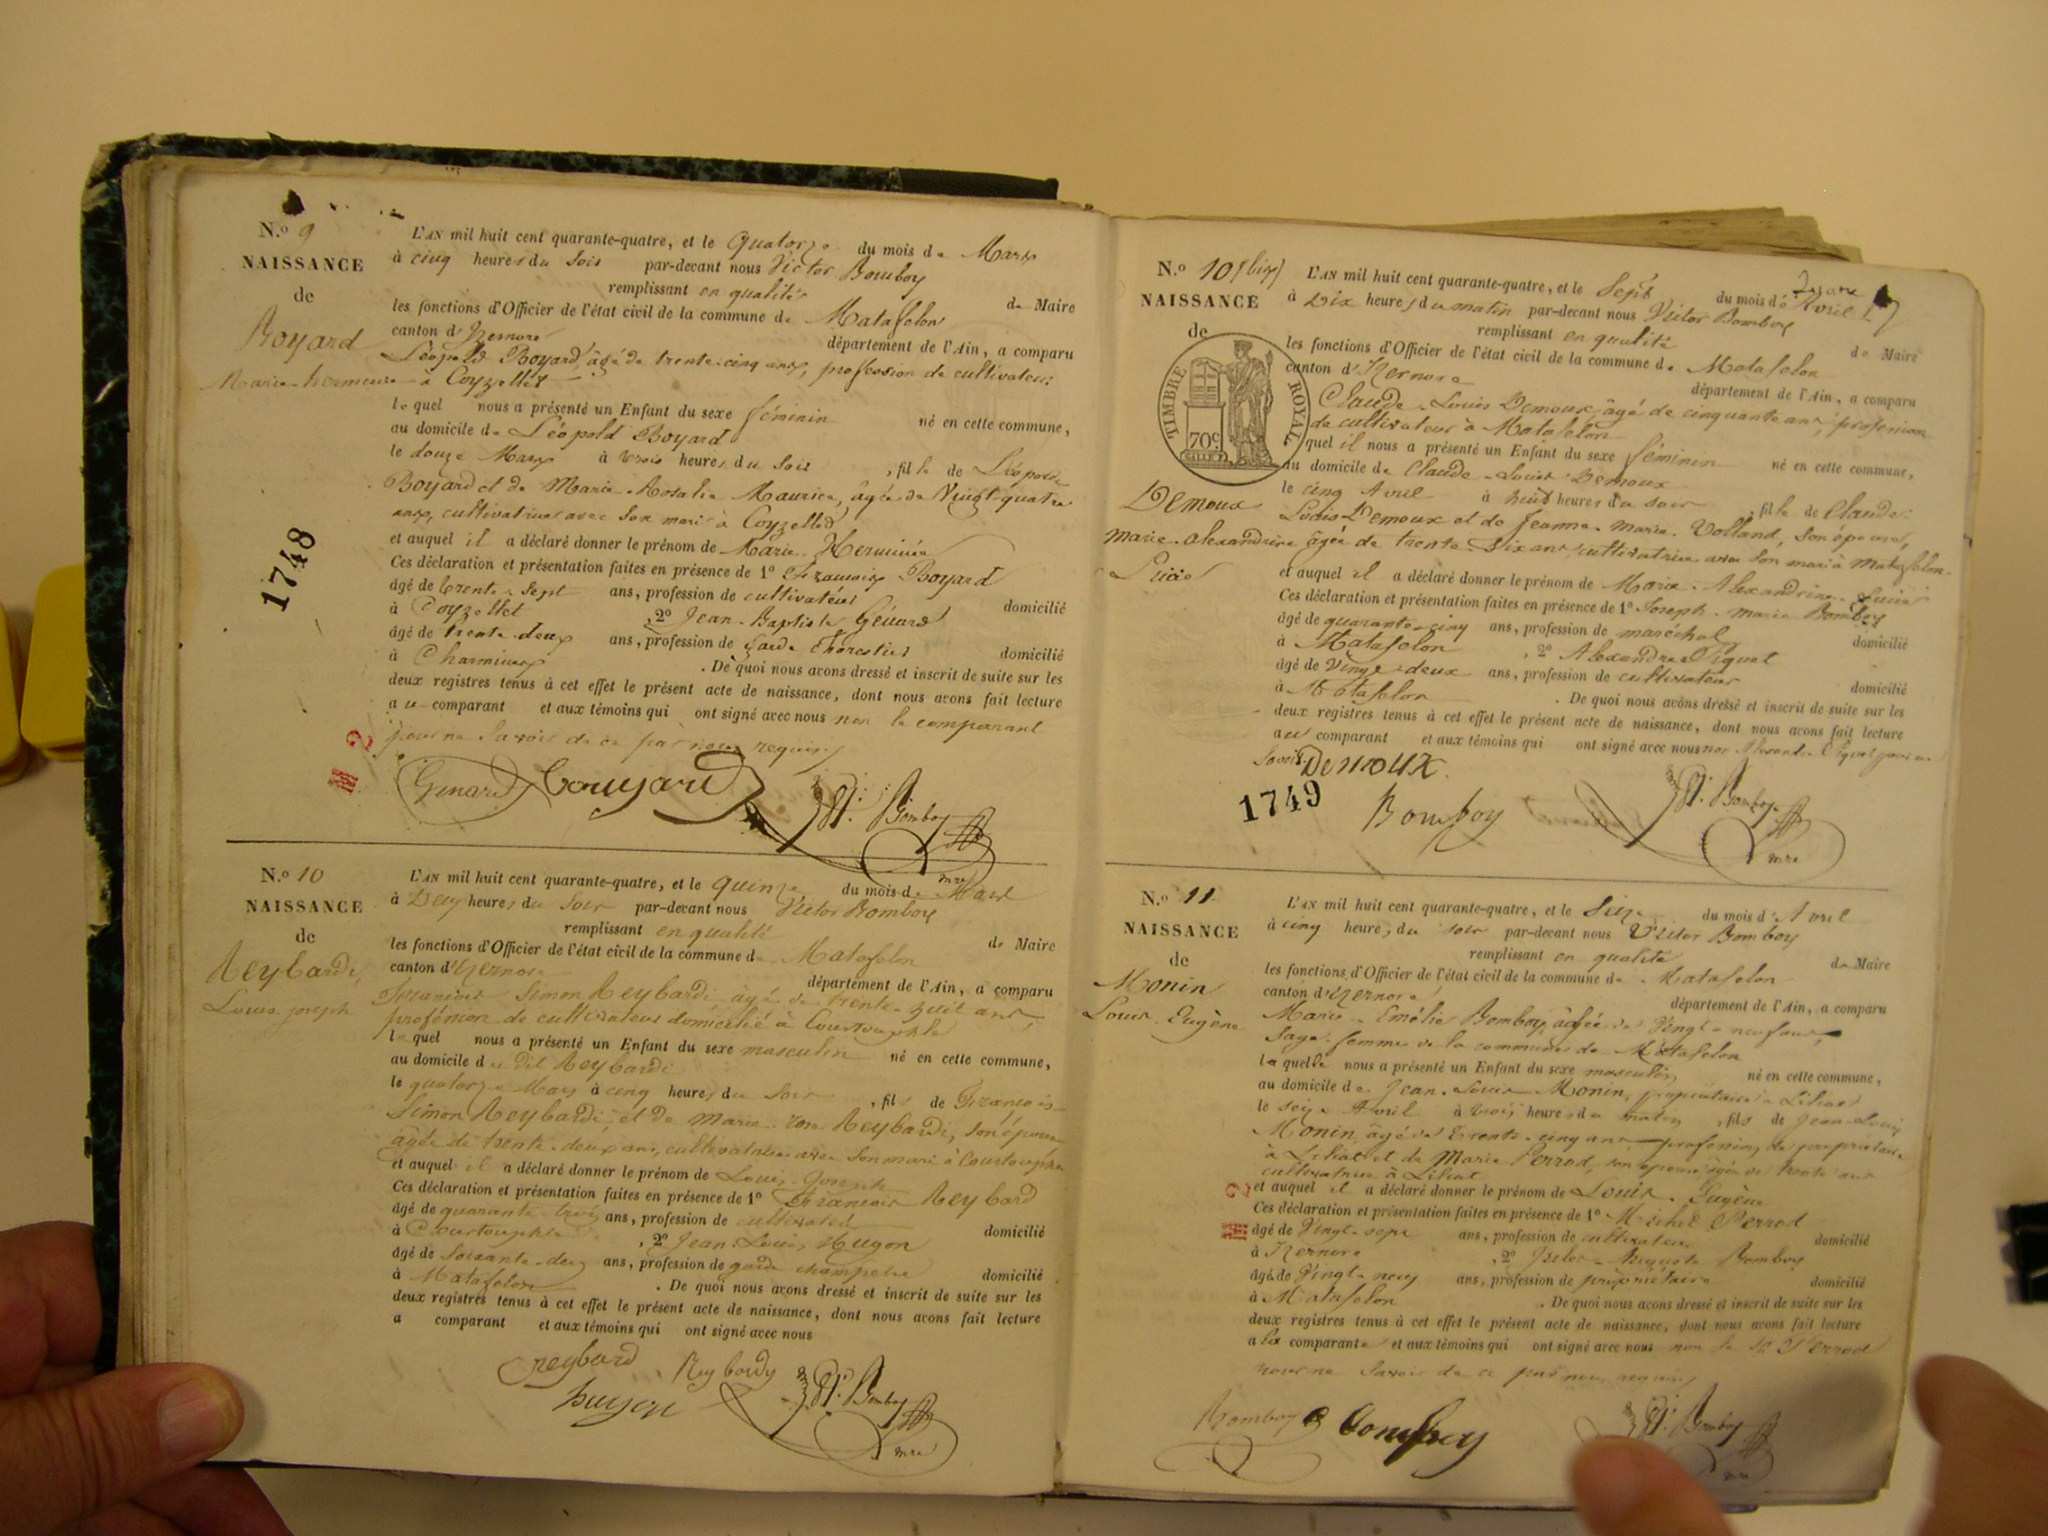 N.o 9
NAISSANCE
de
Boyard
L'AN mil huit cent quarante-quatre, et le Quatorze du mois de Mars
à cinq heures du soir par-devant nous Victor Bomboy
remplissant en qualité
les fonctions d'Officier de l'état civil de la commune de Matafelon de Maire
canton d'Izernore département de l'Ain, a comparu
Léopold Boyard, âgé de trente-cinq ans, profession de cultivateur
à Coyzellet
le quel nous a présenté un Enfant du sexe féminin né en cette commune,
au domicile de Léopold Boyard
le douze Mars à trois heures du soir, fille de Léopold
Boyard et de Marie Rosalie Maurice, âgée de Vingt quatre
ans, cultivatrice avec son mari à Coyzellet
et auquel il a déclaré donner le prénom de Marie Herminie
Ces déclaration et présentation faites en présence de 1o François Boyard
âgé de trente-sept ans, profession de cultivateur domicilié
à Coyzellet, 2o Jean-Baptiste Génard
âgé de trente deux ans, profession de garde domicilié
à Charmines. De quoi nous avons dressé et inscrit de suite sur les
deux registres tenus à cet effet le présent acte de naissance, dont nous avons fait lecture
au comparant et aux témoins qui ont signé avec nous non le comparant
pour ne savoir de ce par nous requis
1748
2
Génard Bouyard Vr. Bomboy
mre
N.o 10
NAISSANCE
de
Reybardi
Louis joseph
L'AN mil huit cent quarante-quatre, et le quinze du mois de Mars
à Deux heures du soir par-devant nous Victor Bomboy
remplissant en qualité
les fonctions d'Officier de l'état civil de la commune de Matafelon de Maire
canton d'Izernore département de l'Ain, a comparu
François Simon Reybardi âgé de trente-huit ans,
profession de cultivateur domicilié à Courtouphle
le quel nous a présenté un Enfant du sexe masculin né en cette commune,
au domicile du dit Reybardi
le quatorze Mars à cinq heures du soir, fils de François
Simon Reybardi, et de Marie Reybardi, son épouse
âgée de trente-deux ans, cultivatrice avec son mari à Courtouphle
et auquel il a déclaré donner le prénom de Louis Joseph
Ces déclaration et présentation faites en présence de 1o François Reybard
âgé de quarante trois ans, profession de cultivateur domicilié
à Courtouphle, 2o Jean Louis Hugon
âgé de soixante-deux ans, profession de garde champetre domicilié
à Matafelon. De quoi nous avons dressé et inscrit de suite sur les
deux registres tenus à cet effet le présent acte de naissance, dont nous avons fait lecture
a comparant et aux témoins qui ont signé avec nous
reybard Reybardy Vr. Bomboy
hugon mre
N.o 10 (bis)
NAISSANCE
de
TIMBRE ROYAL
70c
Demoux
Marie-Alexandrine
L'AN mil huit cent quarante-quatre, et le Sept du mois d'Avril
à Dix heures du matin par-devant nous Victor Bomboy
remplissant en qualité
les fonctions d'Officier de l'état civil de la commune de Matafelon de Maire
canton d'Izernore département de l'Ain, a comparu
Claude-Louis Demoux, âgé de cinquante ans, profession
de cultivateur à Matafelon
quel il nous a présenté un Enfant du sexe féminin né en cette commune,
au domicile de Claude-Louis Demoux
le cinq Avril à huit heures du soir, fille de Claude
Louis Demoux et de Jeanne-Marie Volland, son épouse,
âgée de trente six ans, cultivatrice avec son mari à Matafelon
et auquel il a déclaré donner le prénom de Marie-Alexandrine
Ces déclaration et présentation faites en présence de 1o Joseph-Marie Bomboy
âgé de quarante-cinq ans, profession de maréchal domicilié
à Matafelon, 2o Alexandre Piquet
âgé de Vingt-deux ans, profession de cultivateur domicilié
à Matafelon. De quoi nous avons dressé et inscrit de suite sur les
deux registres tenus à cet effet le présent acte de naissance, dont nous avons fait lecture
au comparant et aux témoins qui ont signé avec nous non Piquet pour ne
savoir
Demoux
1749
Bomboy Vr. Bomboy
mre
N.o 11
NAISSANCE
de
Monin
Louis Eugène
L'AN mil huit cent quarante-quatre, et le Seize du mois d'Avril
à cinq heures du soir par-devant nous Victor Bomboy
remplissant en qualité
les fonctions d'Officier de l'état civil de la commune de Matafelon de Maire
canton d'Izernore département de l'Ain, a comparu
Marie-Emélie Bomboy âgée de Vingt-neuf ans,
sage-femme de la commune de Matafelon
la quelle nous a présenté un Enfant du sexe masculin né en cette commune,
au domicile de Jean-Louis Monin, propriétaire
le seize Avril à trois heures du matin, fils de Jean-Louis
Monin, âgé de trente-cinq ans, profession de propriétaire
et de Marie Perrod, son épouse âgée de trente ans
cultivatrice
et auquel il a déclaré donner le prénom de Louis Eugène
Ces déclaration et présentation faites en présence de 1o Michel Perrod
âgé de Vingt-sept ans, profession de cultivateur domicilié
à Izernore, 2o Auguste Bomboy
âgé de Vingt-neuf ans, profession de propriétaire domicilié
à Matafelon. De quoi nous avons dressé et inscrit de suite sur les
deux registres tenus à cet effet le présent acte de naissance, dont nous avons fait lecture
a la comparante et aux témoins qui ont signé avec nous non le Perrod
pour ne savoir de ce par nous requis
2
Bomboy Bomboy Vr. Bomboy
mre